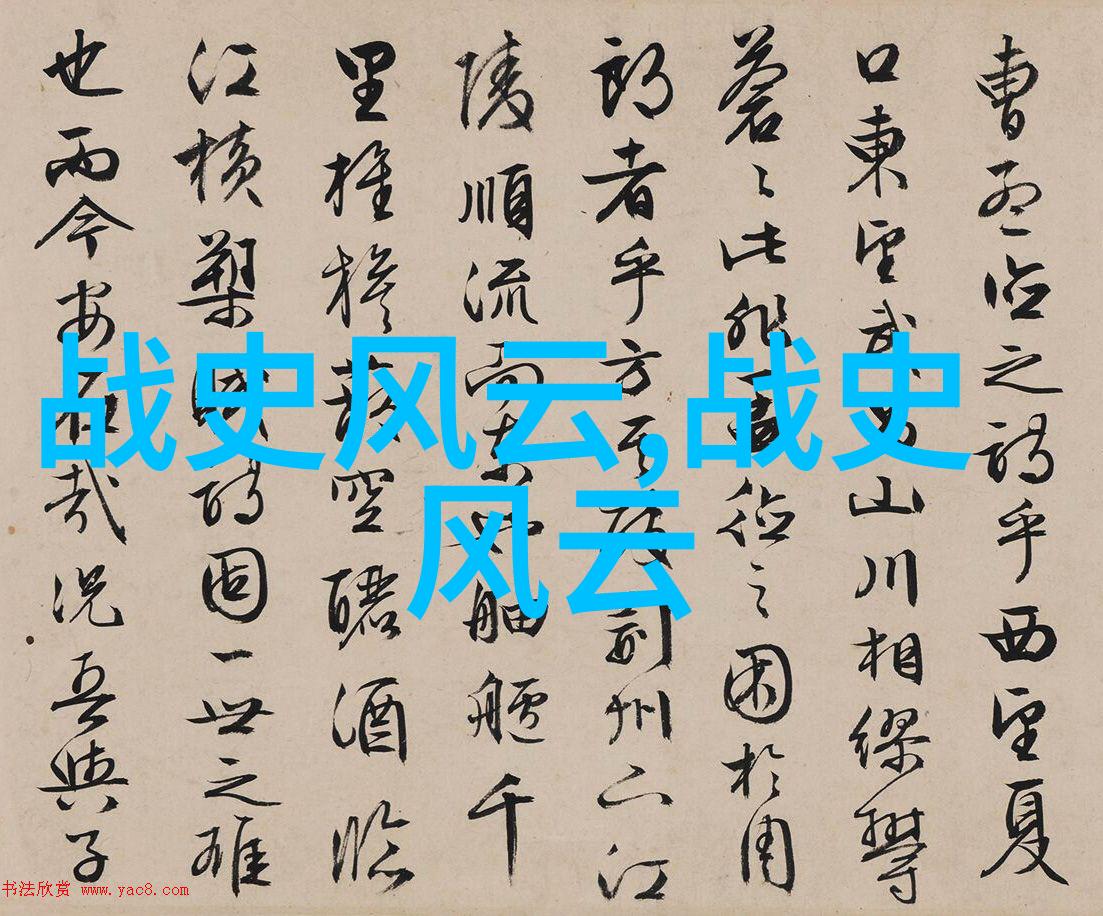 曹孟德之詩乎西望夏
口東望武昌山川相繆鬱
蒼〻此非孟德之困於周
郎者乎方其破荊州下江
陵順流而東也舳艫千
里旌旗蔽空釃酒臨
江橫槊賦詩固一世之雄
也而今安在哉況吾與子
战史风云,战史
风云
书法欣赏 www.yac8.com